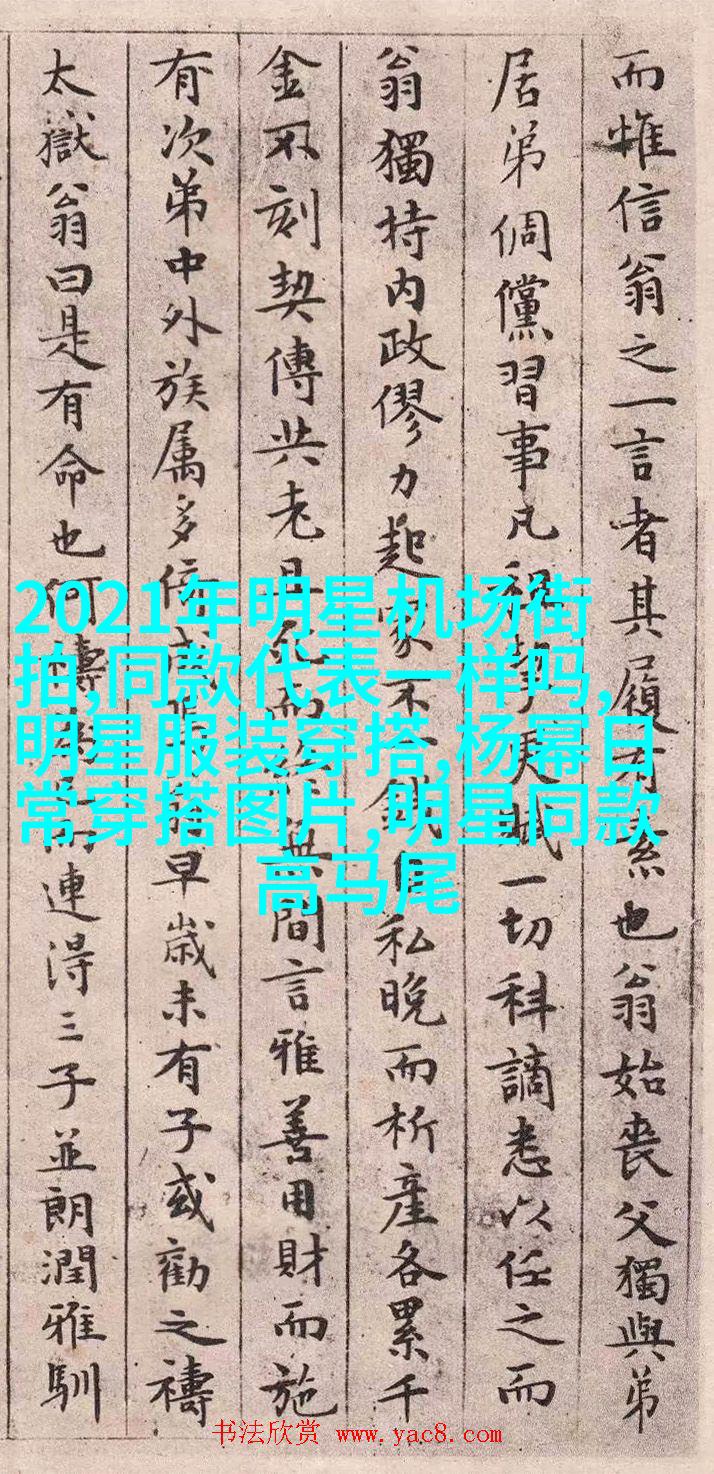 而惟信翁之一言者其履有素也翁始喪父獨與弟
居弟倜儻習事凡稅事更賦一切科謫悉以任之而
翁獨持内政僇力起家不一錢自私晚而析產各累千
金不刻契傳共老且死而終無間言雅善用財而施
有次第中外族属多倍成
早歲未有子或勸之禱
太嶽翁曰是有命也何禱
連得三子並朗潤雅馴
2021年明星机场街
拍,同款代表一样吗,
明星服装穿搭,杨幂日
常穿搭图片,明星同款
高马尾
书法欣赏 www.yac8.com